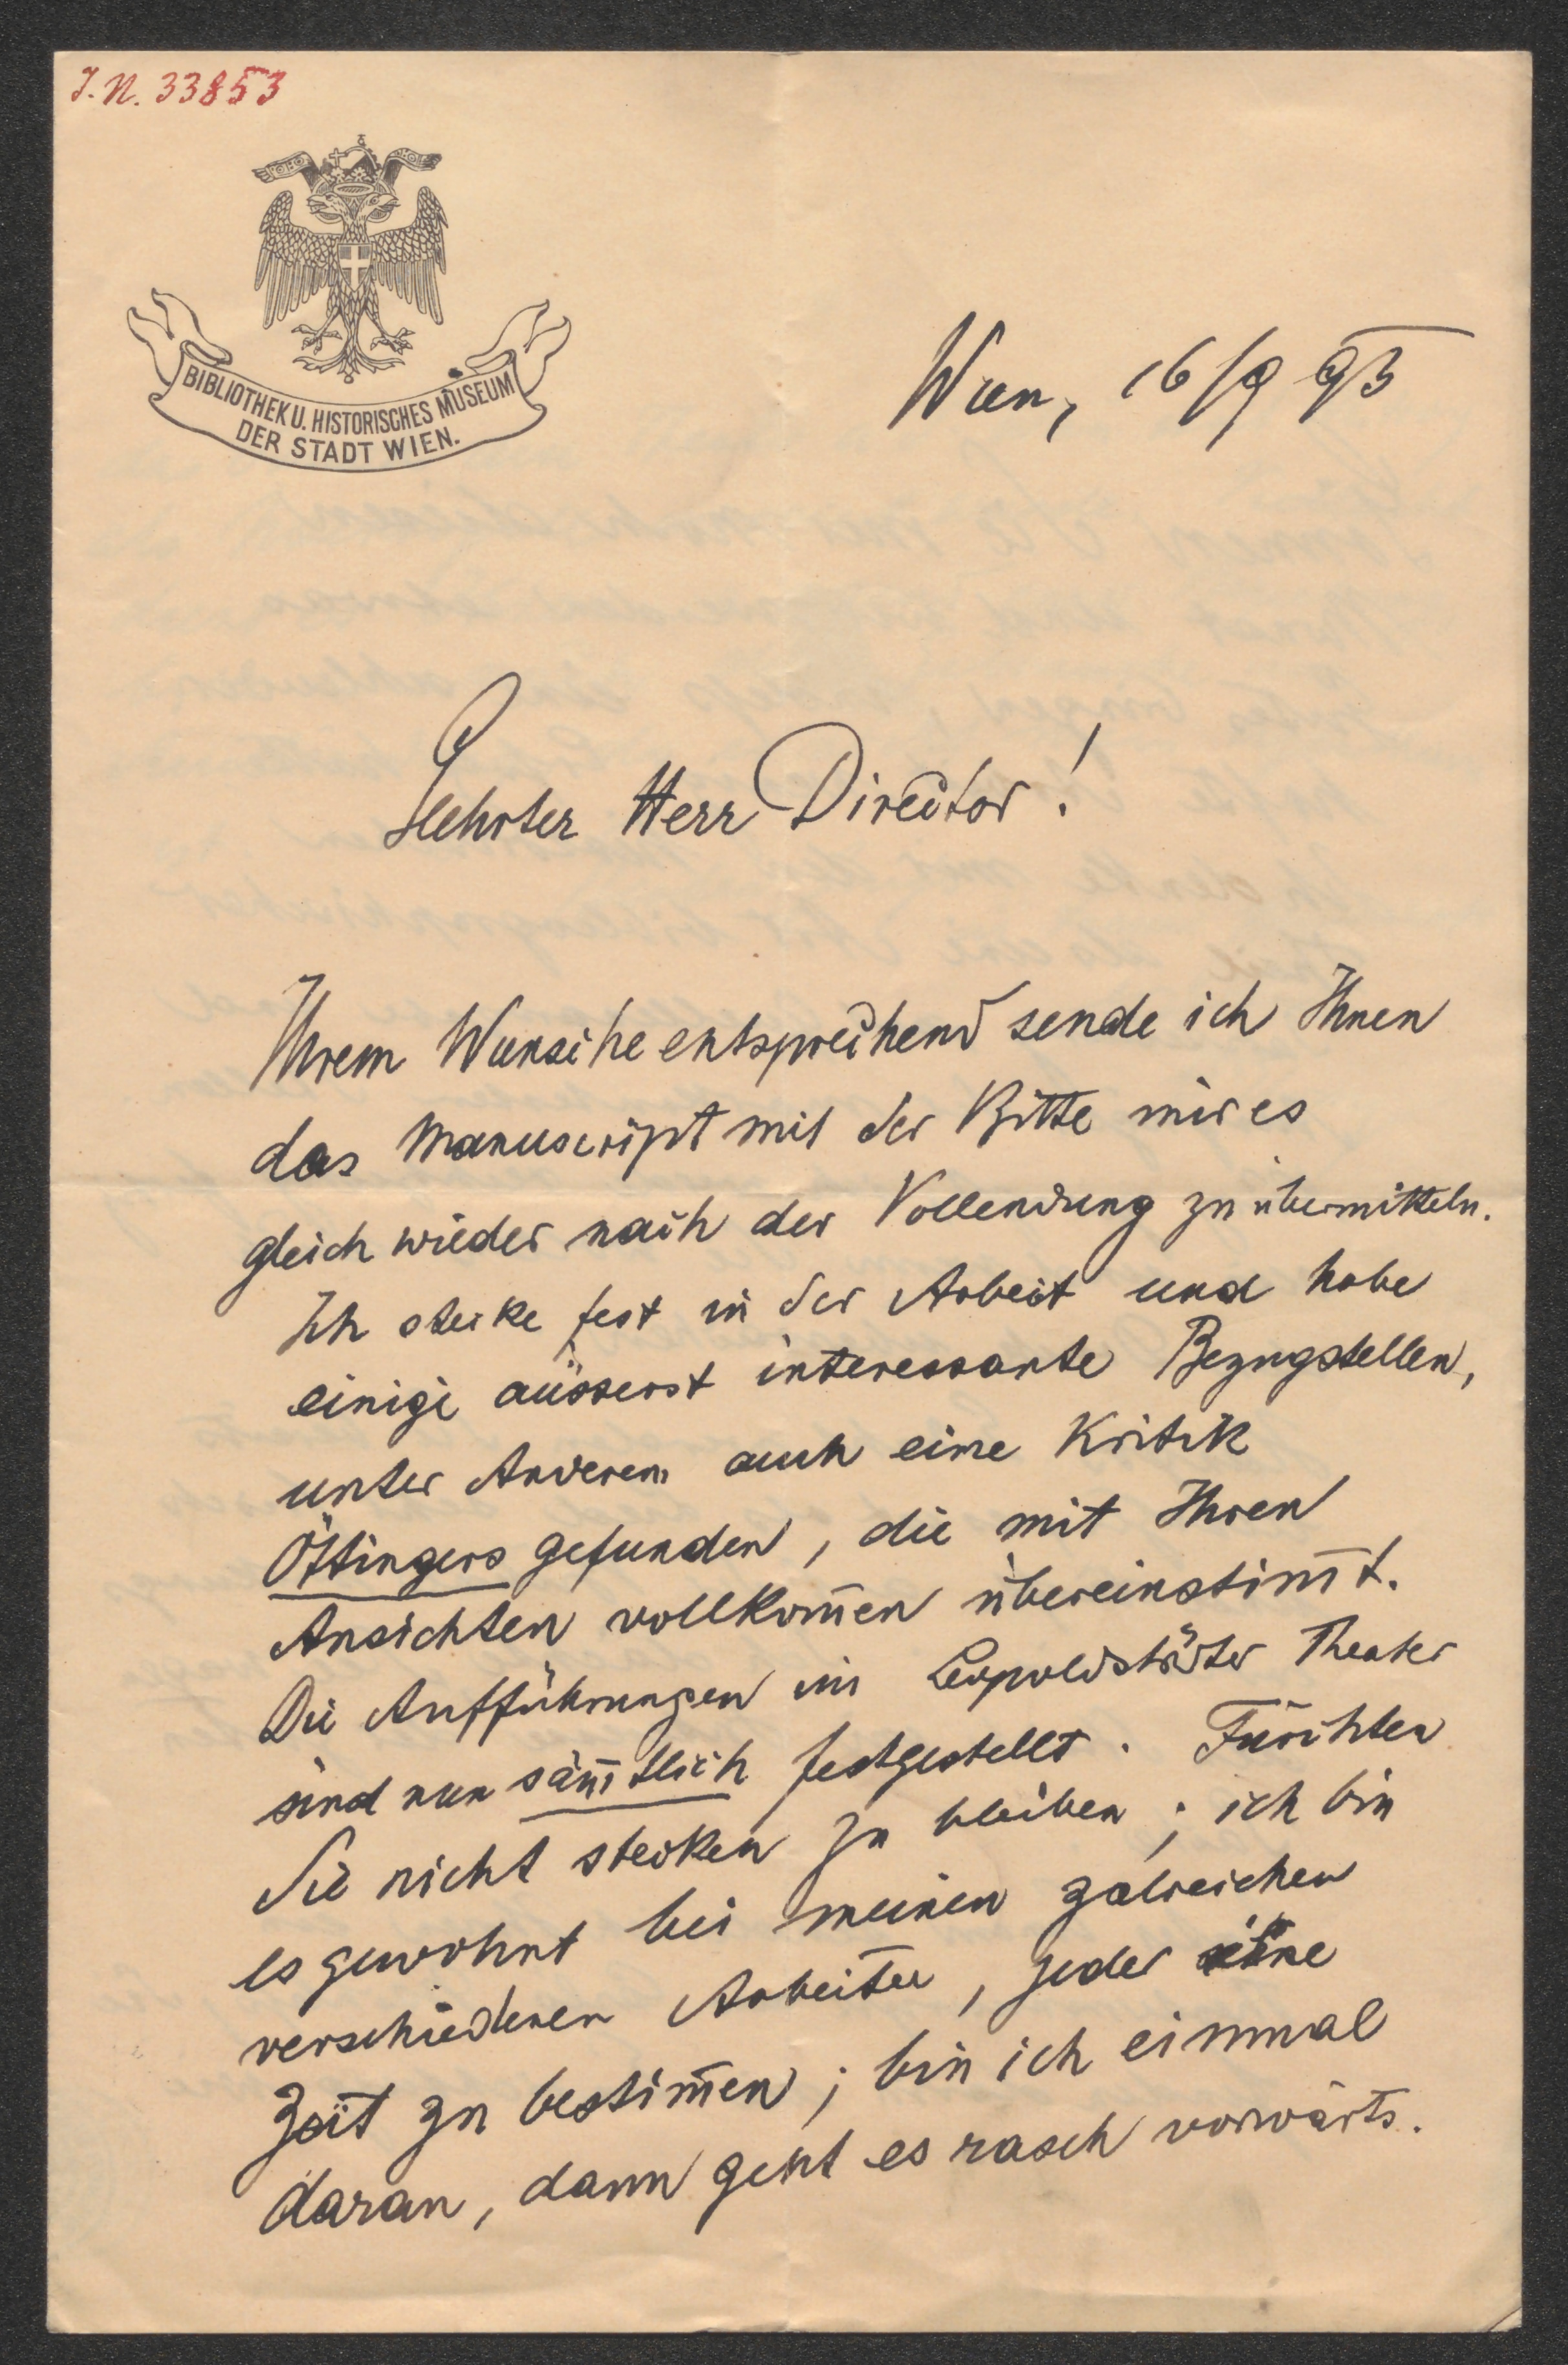 J.N. 33853
BIBLIOTHEK U. HISTORISCHES MUSEUM
DER STADT WIEN.
Wien, 16/9 93
Geehrter Herr Director!
Ihrem Wunsche entsprechend sende ich Ihnen
das Manuscript mit der Bitte mir es
gleich wieder nach der Vollendung zu übermitteln.
Ich stecke fest in der Arbeit und habe
einige äusserst interessante Bezugstellen,
unter Anderem auch eine Kritik
Öttingers gefunden, die mit Ihren
Ansichten vollkom̅en übereinstim̅t.
Die Aufführungen im Leopoldstädter Theater
sind nun säm̅tlich festgestellt. Fürchten
Sie nicht stecken zu bleiben; ich bin
es gewohnt bei meinen zalreichen
verschiedenen Arbeiten, jeder eine
Zeit zu bestim̅en; bin ich einmal
daran, dann geht es rasch vorwärts.